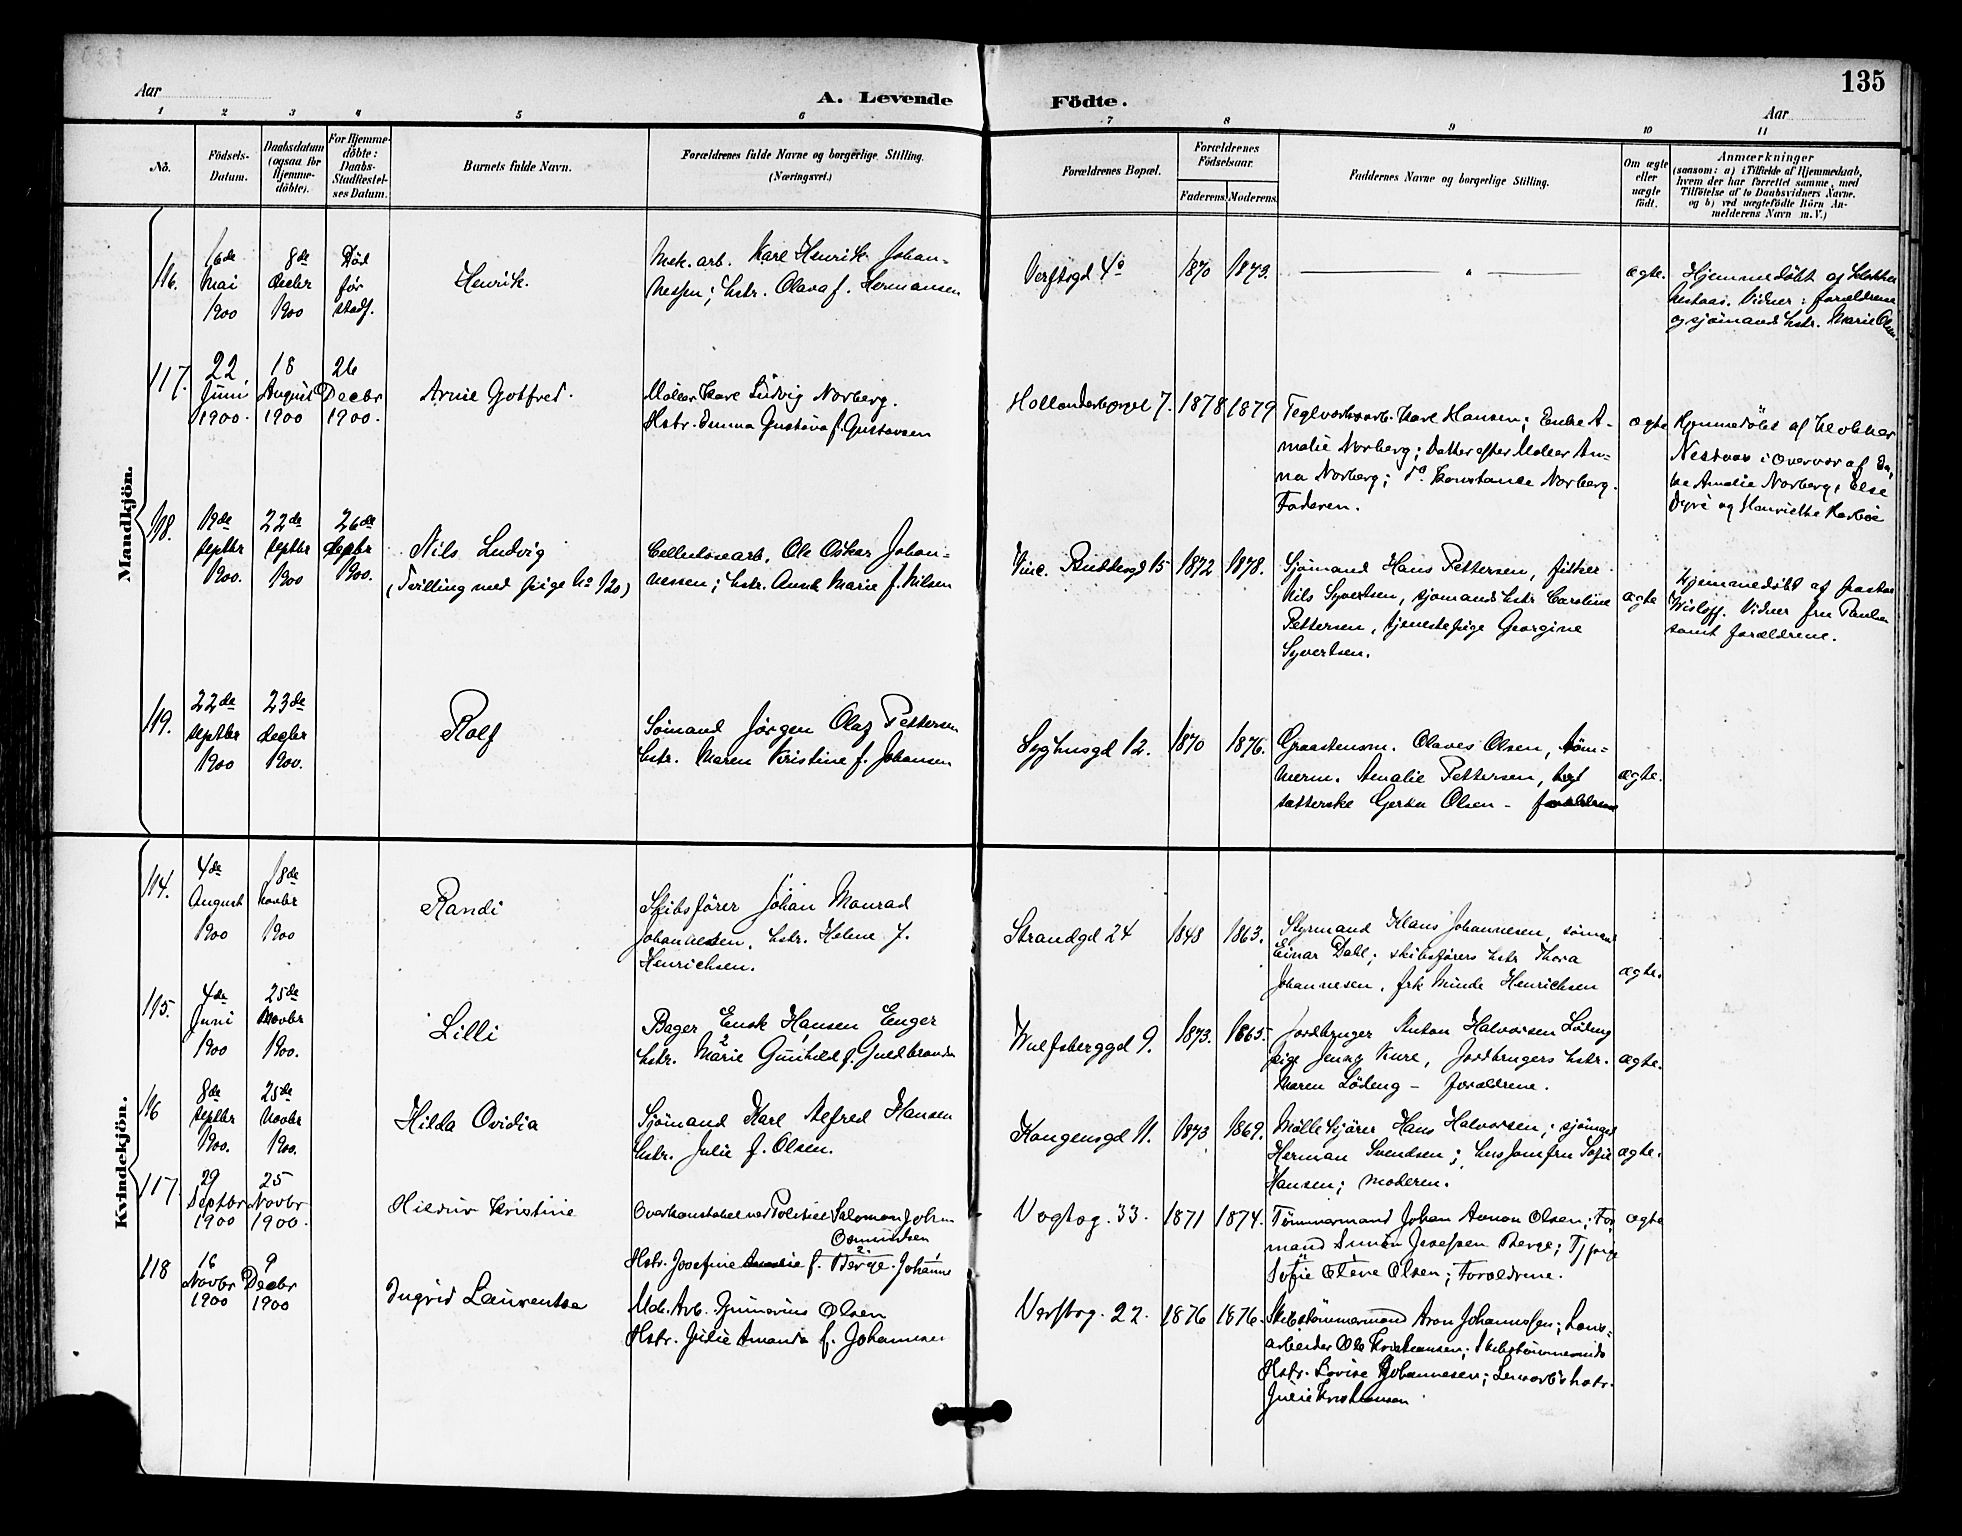 135
Aar
A. Levende Födte.
Aar
1 2 3 4 5 6 7 8 9 10 11
No.
Födsels-
Datum.
Daabsdatum
(ogsaa for
Hjemme-
döbte).
For Hjemme-
döbte:
Daabs-
Stadfæstel-
ses Datum.
Barnets fulde Navn.
Forældrenes fulde Navne og borgerlige Stilling.
(Næringsvei.)
Forældrenes Bopæl.
Forældrenes
Födselsaar.
Faderens. Moderens.
Faddernes Navne og borgerlige Stilling.
Om ægte
eller
uægte
födt.
Anmærkninger
(saasom: a) i Tilfælde af Hjemmedaab,
hvem der har forrettet samme, med
Tilföielse af to Daabsvidners Navne,
og b) ved uægtefödte Börn An-
melderens Navn m. V.)
Mandkjön.
116.
16de
Mai
1900
8de
Decbr
1900
Död
før
stadf.
Henrik.
Mek. arb. Karl Henrik Johan-
nessen; hstr. Olava f. Hermansen
Verftsgd 4
1870 1872.
ægte.
Hjemmedöbt af klokker
Nestaas. Vidner: forældrene
og sjömands hstr. Marie Olsen.
117.
22
Juni
1900.
18
August
1900
26
Decbr
1900.
Arne Gotfred.
Maler Karl Ludvig Norberg.
Hstr. Emma Gustava f. Gustavsen
Hollenderborgel 7.
1878 1879
Teglværksarb. Karl Hansen; Enke A-
malie Norberg; Datter efter Maler An-
na Norberg; do. Konstanse Norberg.
Faderen.
ægte
Hjemmedöbt af klokker
Nestaas i Overvær af En-
ke Amalie Norberg, Else
Dyre og Henriette
118.
19de
Septbr
1900.
22de
Septbr
1900
26de
Decbr
1900.
Nils Ludvig
(Tvilling med pige No 120)
Cellulosearb. Ole Oskar Johan-
nessen; hstr. Anne Marie f. Nilsen
Vinc. Buddesgd 15
1872 1878.
Sjömand Hans Pettersen, fisker
Nils Syvertsen, sjömands hstr Caroline
Pettersen, tjenestepige Georgine
Syvertsen.
ægte
Hjemmedöbt af pastor
Wisløff. Vidner fru Paulsen
samt forældrene.
119.
22de
Septbr
1900
23de
Decbr
1900.
Rolf
Sömand Jörgen Olaf Pettersen
hstr. Maren Kristine f. Johansen
Syghusgd 12.
1870 1876.
Graastensm. Olaves Olsen, töm-
merm. Amalie Pettersen,
sætterske Gerda Olsen - forældrene
ægte.
Kvindekjön.
114.
4de
August
1900
18de
Novbr
1900
Randi
Skibsförer Johan Monrad
Johannesen, hstr. Helene f.
Henrichsen.
Strandgd 24
1848 1863.
Styrmand Klaus Johannesen, sömand
Einar Dahl; skibsförers hstr Thora
Johannesen, frk Minde Henrichsen
ægte.
115.
4de
Juni
1900
25de
Novbr
1900.
Lilli
Bager Enok Hansen Enger
hstr. Marie Gunhild f. Guldbrandsen
Wulfsberggd 9.
1873. 1865.
Jordbruger Anton Halvorsen Lödeng
pige Jenny Kure, Jordbrugers hstr.
Maren Lödeng - forældrene.
ægte.
116
8de
Septbr
1900.
25de
Novbr
1900.
Hilda Ovidia
Sjömand Karl Alfred Hansen
hstr. Julie f. Olsen.
Kongensgd 11.
1873 1869.
Mölle kjörer Hans Halvorsen; sjömand
Herman Svendsen; husjomfru Sofie
Hansen; moderen.
ægte.
117.
29
Septbr
1900
25
Novbr
1900.
Hildur Kristine
Overkonstabel ved Politiet Salomon Johan
Osmundsen
Hstr. Josefine Amalie f. Berge Johanne
Vogtsg. 33.
1871 1874.
Tömmermand Johan Olsen; For
mand Simon Josefsen Berge; Tj. pige
Sofie Olene Olsen; Forældrene.
ægte
118
16
Novbr
1900
9
Decbr
1900
Ingrid Laurentse
Mek. Arb. Gunerius Olsen
Hstr. Julie Amanda f. Johannesen
Verftsg. 22.
1876 1876.
Skibstömmermand Aron Johannessen; Løs-
arbeider Ole Kristiansen; Skibstömmermands
Hstr. Lovise Johannesen; hstr.
Julie Kristiansen